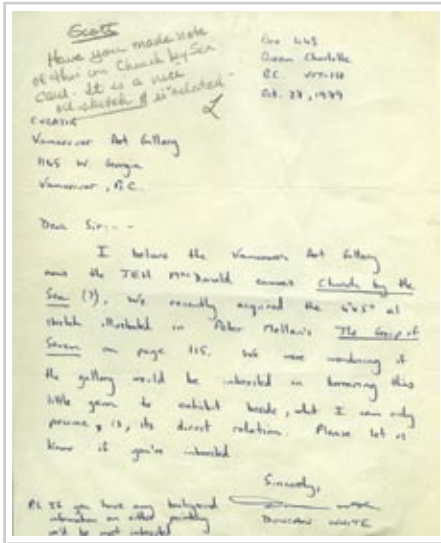 Scott
Have you made note
of this in Church by Sea
Card. It is a nice
oil sketch & is related.
Box 448
Queen Charlotte
B.C.
Oct. 27, 1979
CURATOR
Vancouver Art Gallery
1145 W. Georgia
Vancouver, B.C.
Dear Sir:--
I believe the Vancouver Art Gallery
owns the JEH MacDonald canvas Church by the
Sea (?). We recently acquired the 4"x5" oil
sketch illustrated in Peter Mellen's The Group of
Seven on page 115. We were wondering if
the gallery would be interested in borrowing this
little gem to exhibit beside, what I can only
presume, is, its direct relation. Please let us
know if you're interested
Sincerely,
DUNCAN WHITE
P.S. If you have any background
information on either painting
we'd be most interested